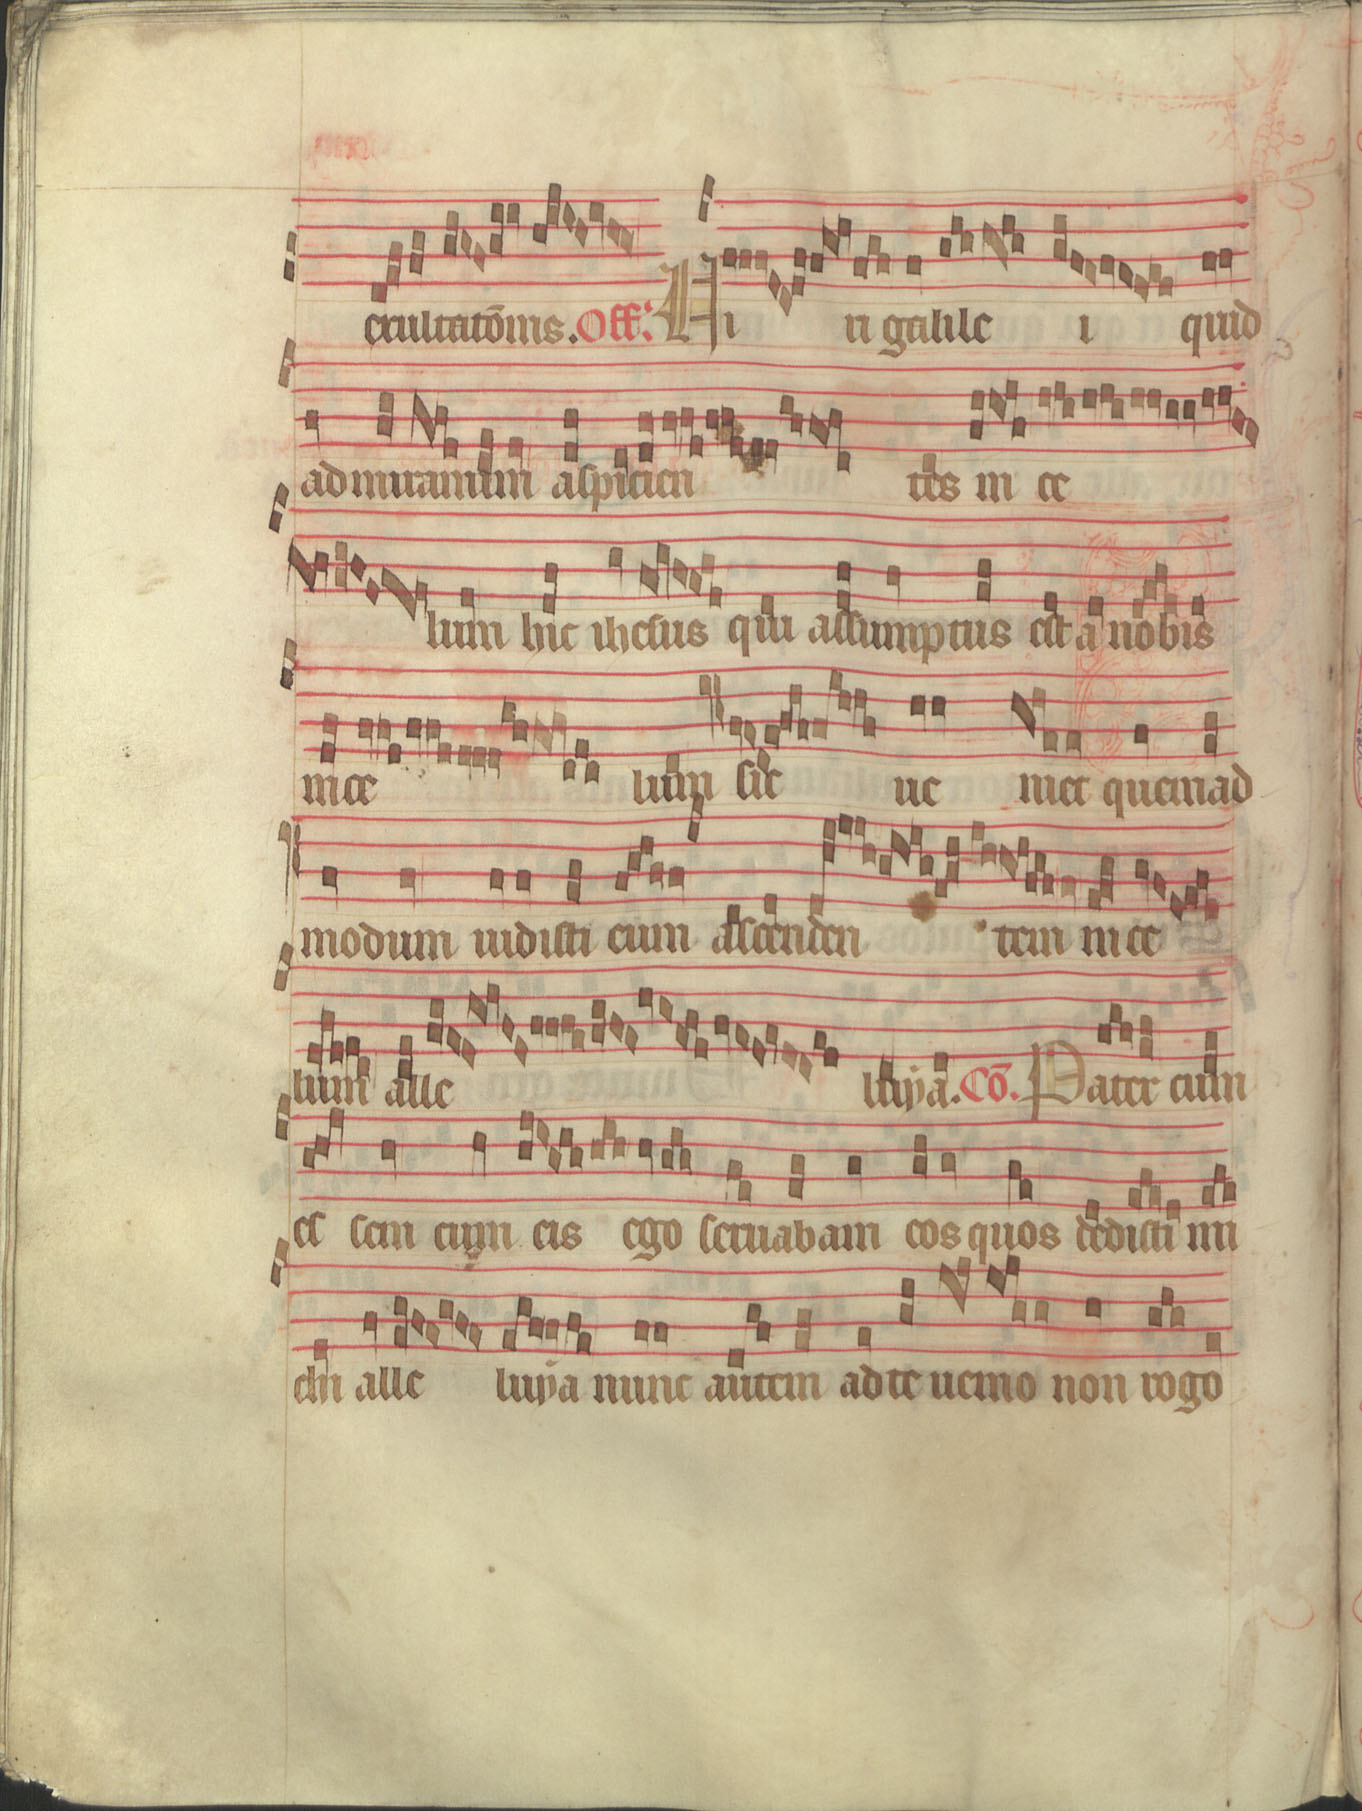 exultatōnis. Off. Uiri galilei quid
admiramini aspicientes in ce
lum hic ihesus qui assumptus est a nobis
in celum sic ueniet quemad
modum uidisti eum ascendentem in ce
lum alleluya. Cō. Pater cum
essem cum eis ego seruabam eos quos dedisti mi
chi alleluya nunc autem ad te uenio non rogo